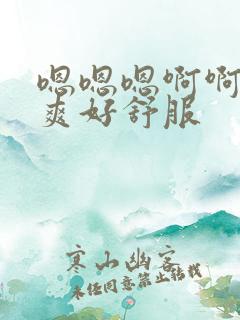 嗯嗯嗯啊啊
爽好舒服
寒山幽客
未经同意禁止转载